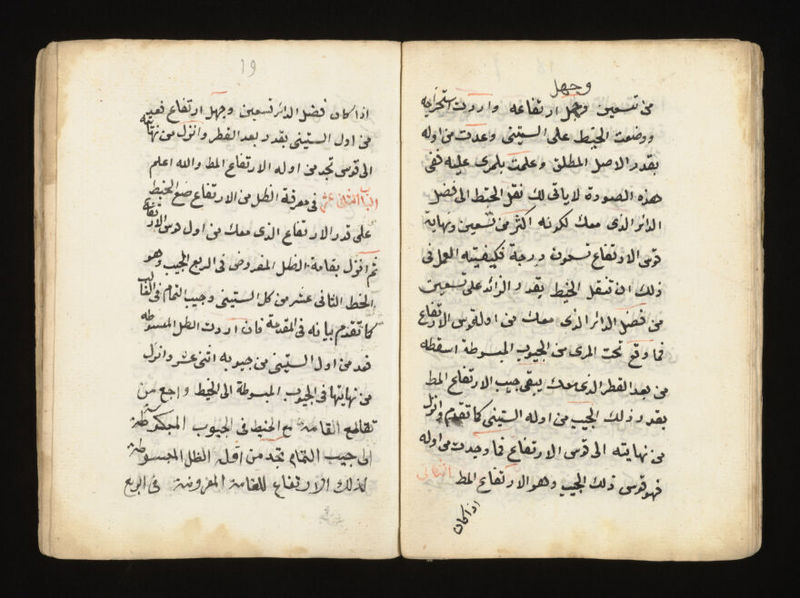 وجهل
من تسعين وجهل ارتفاعه واردت استخراجه
ووضعت الخيط على الستينى وعددت من اوله
بقدر الاصل المطلق وعلمت بالمرى عليه ففى
هذه الصورة لا ياتى لك نقل الخيط الى فضل
الدائر الذى معك لكونه اكثر من تسعين ونهاية
قوس الارتفاع تسعون درجة فكيفيته العمل فى
ذلك ان تنقل الخيط بقدر الزائد على تسعين
من فضل الدائر الذى معك من اول قوس الارتفاع
فما وقع تحت المرى من الجيوب المبسوطة اسقطه
من بعد القطر الذى معك يبقى جيب الارتفاع المط
بقدر ذلك الجيب من اوله الستينى كما تقدم وانزل
من نهايته الى قوس الارتفاع فما وجدت من اوله
فهو قوس ذلك الجيب وهو الارتفاع المط
اذا كان
19
اذا كان فضل الدائر تسعين وجهل ارتفاع فعد
من اول الستينى بقدر بعد القطر وانزل من نهايته
الى قوس تجد من اوله الارتفاع المط والله اعلم
الباب الثانى عشر فى معرفة الظل من الارتفاع ضع الخيط
على قدر الارتفاع الذى معك من اول قوس الارتفاع
ثم انزل بقامة الظل المفروض فى الربع المجيب وهو
الخط الثانى عشر من كل الستينى وجيب التمام فى الغالب
كما تقدم بيانه فى المقدمة فان اردت الظل المبسوط
فعد من اول الستينى من جيوبه اثنى عشر وانزل
من نهايتها فى الجيوب المبسوطة الى الخيط وارجع من
تقاطع القامة مع الخيط فى الجيوب المنكوسة
الى جيب التمام تجد من اوله الظل المبسوط
لذلك الارتفاع للقامة المفروضة فى الربع